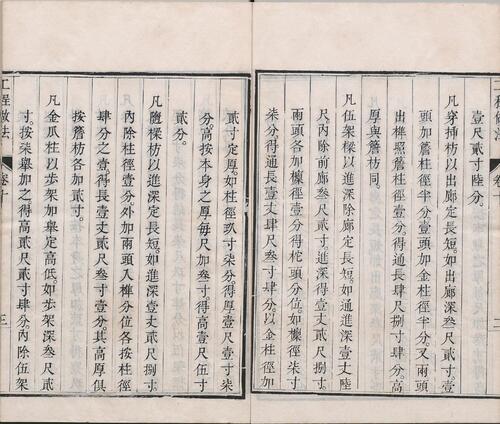 工程做法
卷十
二
壹尺貳寸陸分。
凡穿插枋以出廊定長短。如出廊深叁尺貳寸。壹
頭加簷柱徑半分。壹頭加金柱徑半分。又兩頭
出榫照簷柱徑壹分。得通長肆尺捌寸肆分。高
厚與簷枋同。
凡伍架樑以進深除廊定長短。如通進深壹丈陸
尺。內除前廊叁尺貳寸。進深得壹丈貳尺捌寸。
兩頭各加檁徑壹分得柁頭分位。如檁徑柒寸
柒分。得通長壹丈肆尺叁寸肆分。以金柱徑加
貳寸定厚。如柱徑玖寸柒分。得厚壹尺壹寸柒
分。高按本身之厚每尺加叁寸。得高壹尺伍寸
貳分。
凡隨樑枋以進深定長短。如進深壹丈貳尺捌寸。
內除柱徑壹分。外加兩頭入榫分位。各按柱徑
肆分之壹。得長壹丈貳尺叁寸壹分。其高厚俱
按簷枋各加貳寸。
凡金瓜柱以步架加舉定高低。如步架深叁尺貳
寸。按柒舉加之。得高貳尺貳寸肆分。內除伍架
工程做法
卷十
三